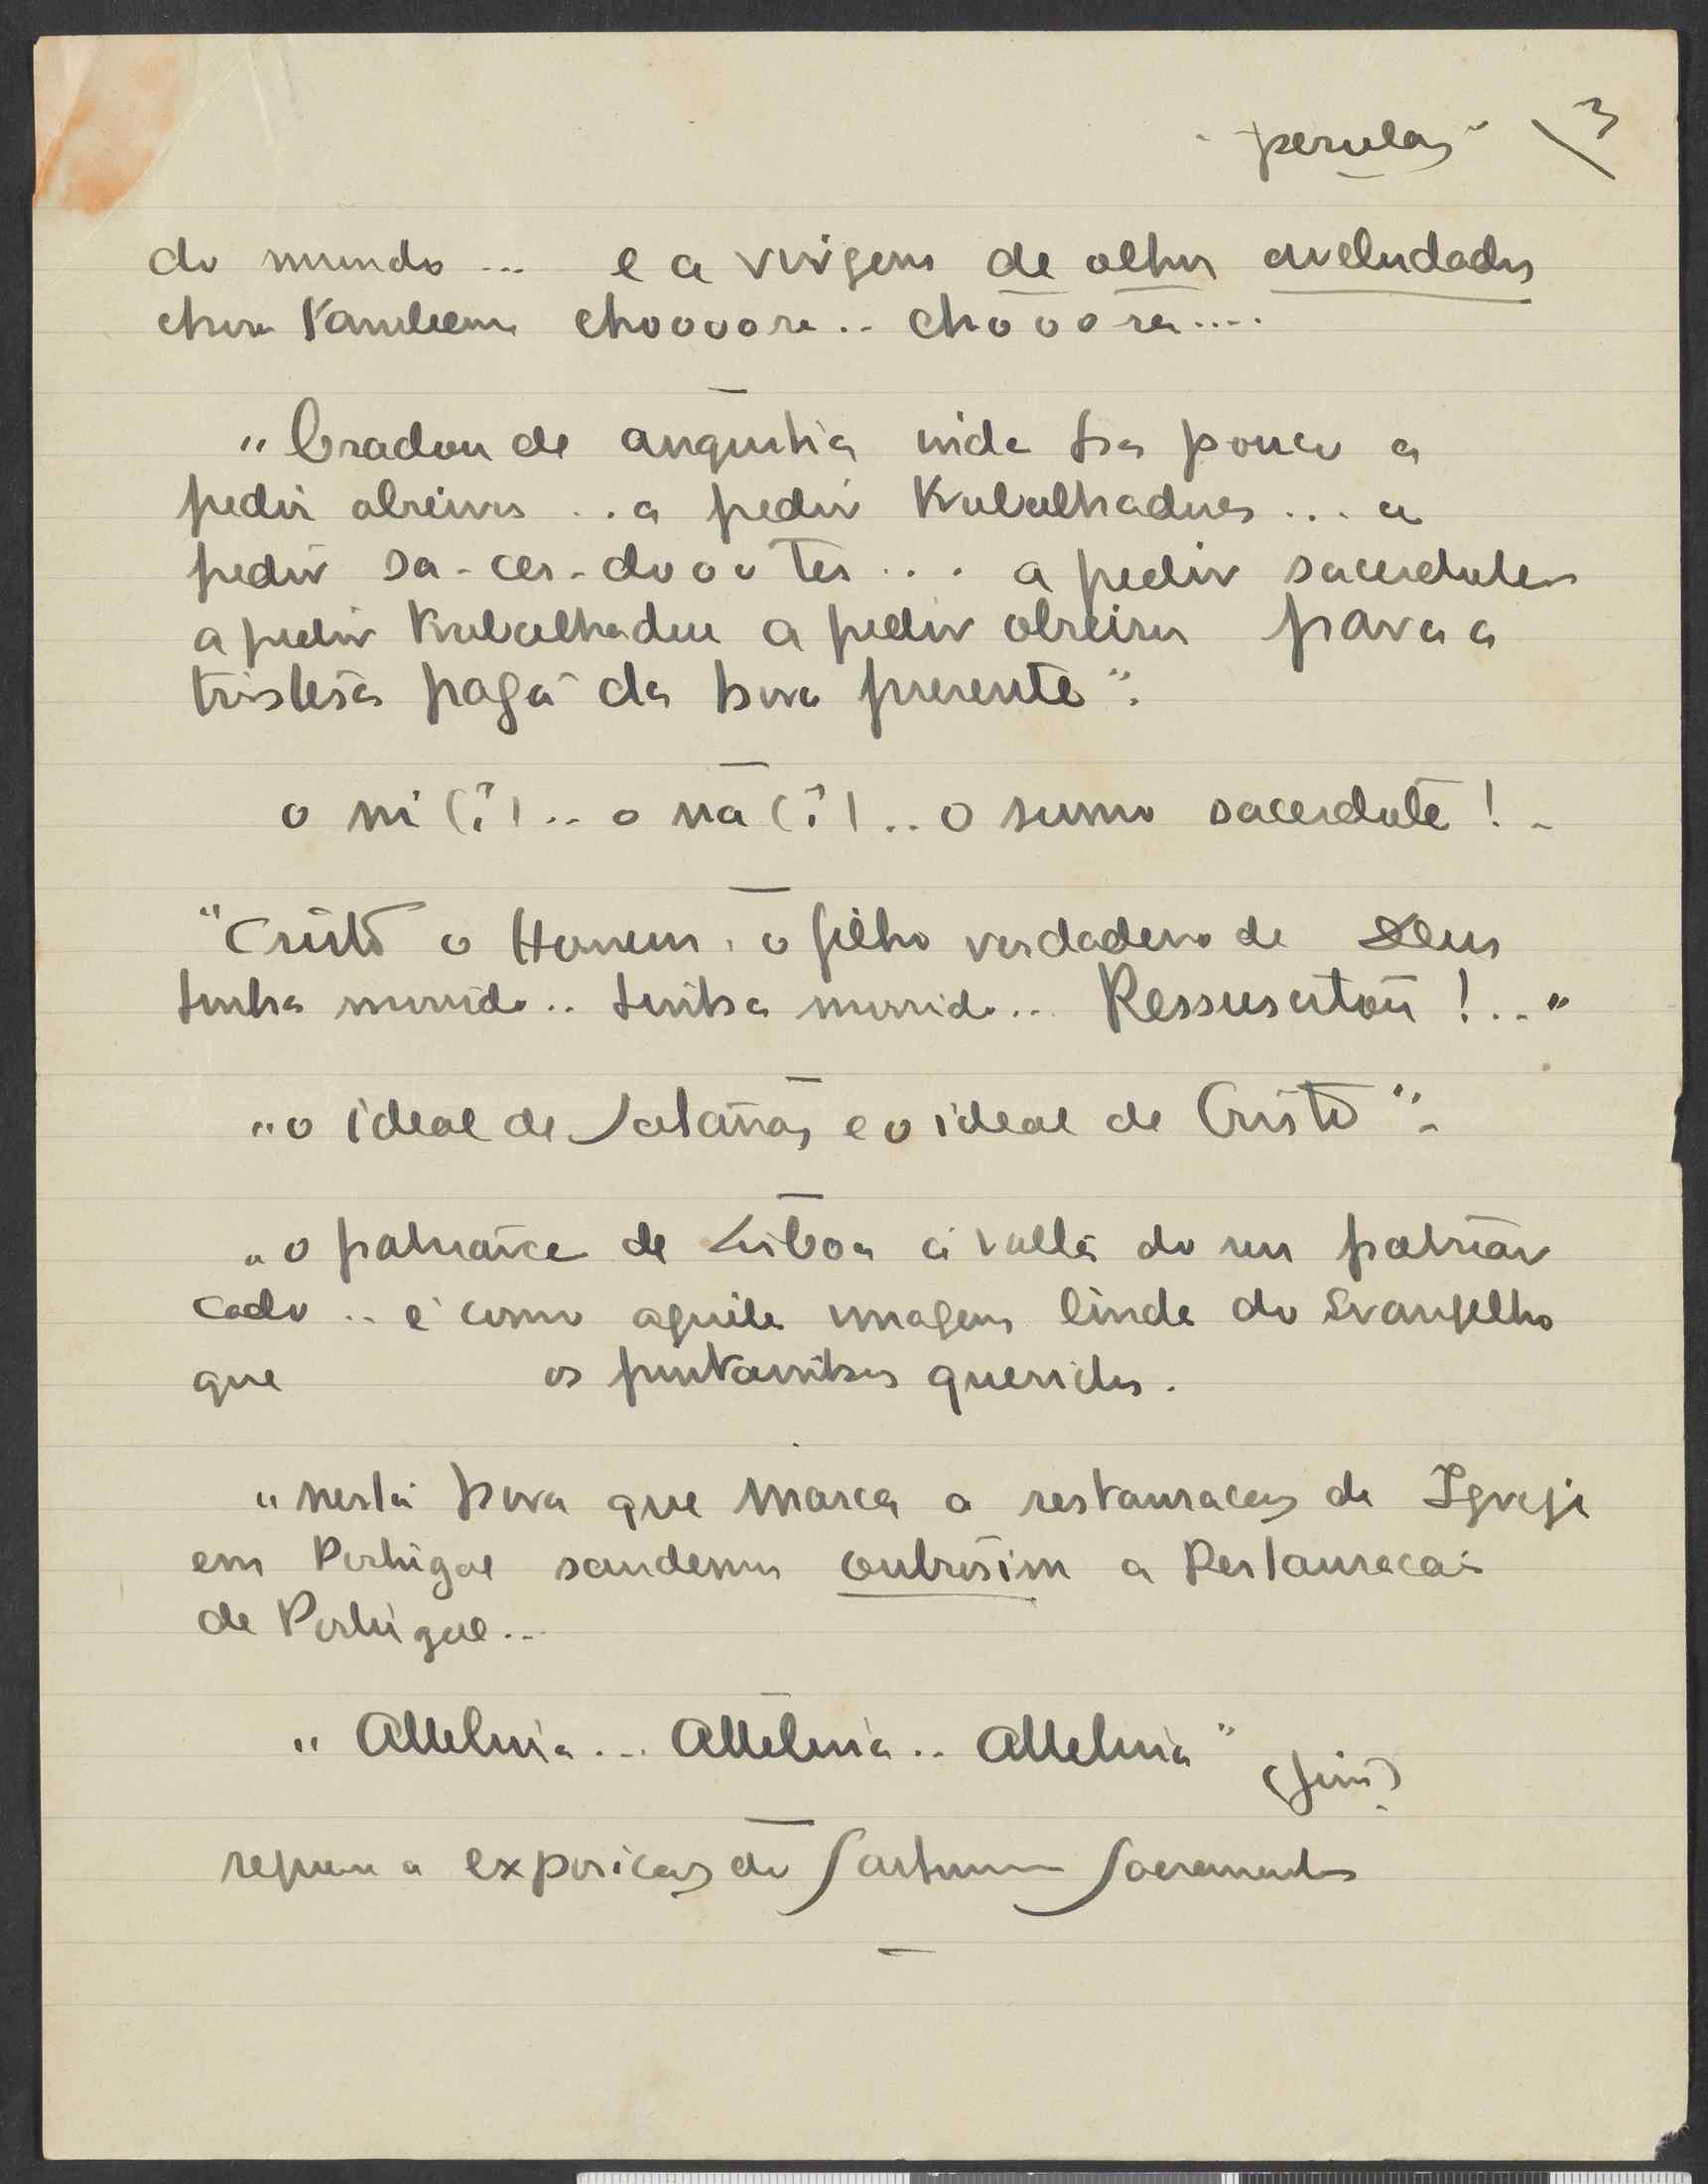 "perulas" 3
do mundo... e a virgem de olhos aveludados
chora tambem choooora.. chooora....
"Bradou de angustia inda ha pouco a
pedir obreiros... a pedir trabalhadores... a
pedir sa-cer-dooo tes... a pedir sacerdotes
a pedir trabalhadores a pedir obreiros para a
tristesa pagã da hora presente".
o ni (?).. o na (?).. o sumo sacerdote! -
"Cristo o Homem, o filho verdadeiro de Deus
tinha morrido.. tinha morrido.. Ressuscitou!.."
"o ideal de Satanás e o ideal de Cristo".
"o patriarca de Lisboa á volta do seu patriar
cado.. é como aquela imagem linda do Evangelho
que os pintainhos queridos.
"nesta hora que marca a restauração da Igreja
em Portugal saudemos outrosim a Restauração
de Portugal..
"Alleluia... Alleluia.. Alleluia" (fim)
a exposição do Santissimo Sacramento